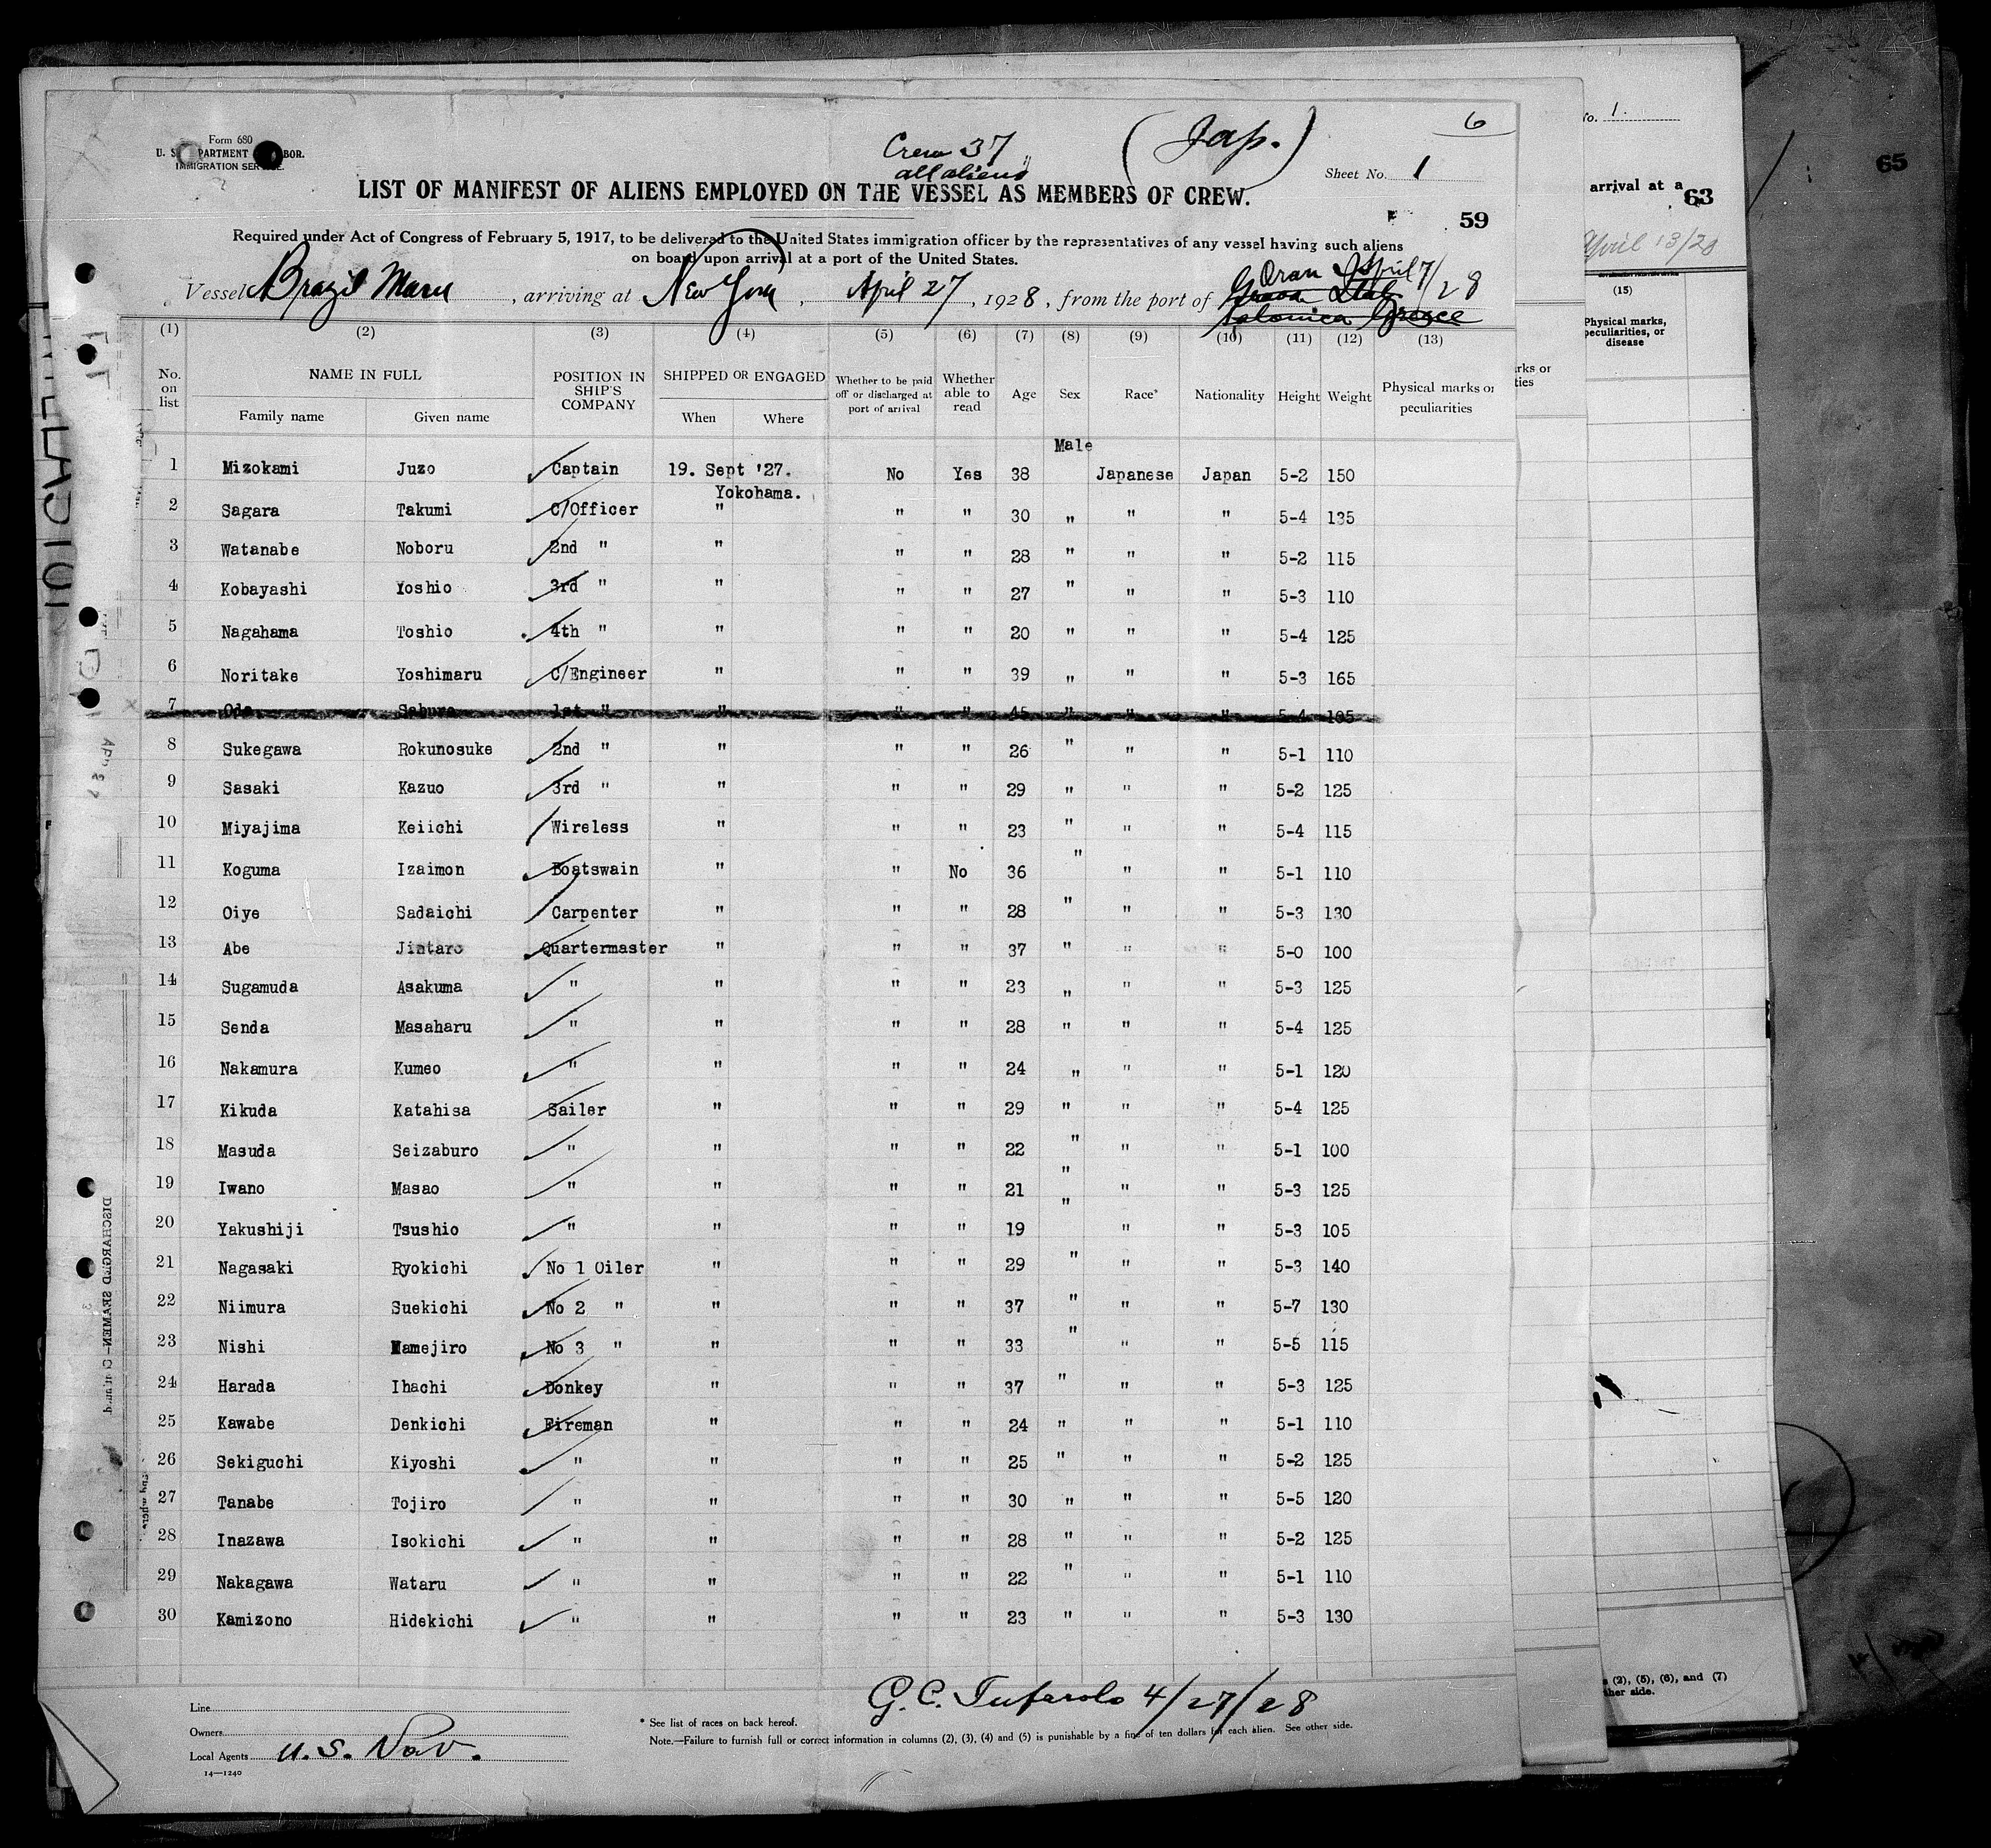 Form 680
U. S. DEPARTMENT OF LABOR.
IMMIGRATION SERVICE.
Crew 37
all aliens
(Jap.)
6
Sheet No. 1
LIST OF MANIFEST OF ALIENS EMPLOYED ON THE VESSEL AS MEMBERS OF CREW.
59
Required under Act of Congress of February 5, 1917, to be delivered to the United States immigration officer by the representatives of any vessel having such aliens
on board upon arrival at a port of the United States.
Oran April 7/28
Vessel Brazil Maru, arriving at New York, April 27, 1928, from the port of Genoa Italy
Salonica Greece
(1) (2) (3) (4) (5) (6) (7) (8) (9) (10) (11) (12) (13)
No. on list NAME IN FULL Family name Given name POSITION IN SHIP'S COMPANY SHIPPED OR ENGAGED When Where Whether to be paid off or discharged at port of arrival Whether able to read Age Sex Race* Nationality Height Weight Physical marks or peculiarities
Male
1 Mizokami Juzo Captain 19. Sept '27. No Yes 38 Japanese Japan 5-2 150
Yokohama.
2 Sagara Takumi C/Officer " " " 30 " " " 5-4 135
3 Watanabe Noboru 2nd " " " " 28 " " " 5-2 115
4 Kobayashi Yoshio 3rd " " " " 27 " " " 5-3 110
5 Nagahama Toshio 4th " " " " 20 " " " 5-4 125
6 Noritake Yoshimaru C/Engineer " " " 39 " " " 5-3 165
7 Oda Saburo 1st " " " " 45 " " " 5-4 105
8 Sukegawa Rokunosuke 2nd " " " " 26 " " " 5-1 110
9 Sasaki Kazuo 3rd " " " " 29 " " " 5-2 125
10 Miyajima Keiichi Wireless " " " 23 " " " 5-4 115
11 Koguma Izaimon Boatswain " " No 36 " " " 5-1 110
12 Oiye Sadaichi Carpenter " " " 28 " " " 5-3 130
13 Abe Jintaro Quartermaster " " " 37 " " " 5-0 100
14 Sugamuda Asakuma " " " " 23 " " " 5-3 125
15 Senda Masaharu " " " " 28 " " " 5-4 125
16 Nakamura Kumeo " " " " 24 " " " 5-1 120
17 Kikuda Katahisa Sailer " " " 29 " " " 5-4 125
18 Masuda Seizaburo " " " " 22 " " " 5-1 100
19 Iwano Masao " " " " 21 " " " 5-3 125
20 Yakushiji Tsushio " " " " 19 " " " 5-3 105
21 Nagasaki Ryokichi No 1 Oiler " " " 29 " " " 5-3 140
22 Niimura Suekichi No 2 " " " " 37 " " " 5-7 130
23 Nishi Mamejiro No 3 " " " " 33 " " " 5-5 115
24 Harada Ihachi Donkey " " " 37 " " " 5-3 125
25 Kawabe Denkichi Fireman " " " 24 " " " 5-1 110
26 Sekiguchi Kiyoshi " " " " 25 " " " 5-2 125
27 Tanabe Tojiro " " " " 30 " " " 5-5 120
28 Inazawa Isokichi " " " " 28 " " " 5-2 125
29 Nakagawa Wataru " " " " 22 " " " 5-1 110
30 Kamizono Hidekichi " " " " 23 " " " 5-3 130
G. C. Tufarolo 4/27/28
Line
Owners
Local Agents U. S. Nav.
14—1240
* See list of races on back hereof.
Note.—Failure to furnish full or correct information in columns (2), (3), (4) and (5) is punishable by a fine of ten dollars for each alien. See other side.
No. 1.
arrival at a
63
April 13/28
(15)
Physical marks, peculiarities, or disease
(2), (5), (6), and (7)
other side.
65
DISCHARGED SEAMEN—Continued